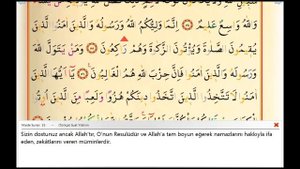 وَاللّٰهُ وَاسِعٌ عَلِيمٌ اِنَّمَا وَلِيُّكُمُ اللّٰهُ وَرَسُولُهُ وَالَّذِينَ اٰمَنُوا الَّذِينَ
يُقِيمُونَ الصَّلٰوةَ وَيُؤْتُونَ الزَّكٰوةَ وَهُمْ رَاكِعُونَ وَمَنْ يَتَوَلَّ اللّٰهَ
وَرَسُولَهُ وَالَّذِينَ اٰمَنُوا فَاِنَّ حِزْبَ اللّٰهِ هُمُ الْغَالِبُونَ يَا اَيُّهَا الَّذِينَ
اٰمَنُوا لَا تَتَّخِذُوا الَّذِينَ اتَّخَذُوا دِينَكُمْ هُزُوًا وَلَعِبًا مِنَ الَّذِينَ
Sizin dostunuz ancak Allah'tır, O'nun Resulüdür ve Allah'a tam boyun eğerek namazlarını hakkıyla ifa
eden, zekâtlarını veren müminlerdir.